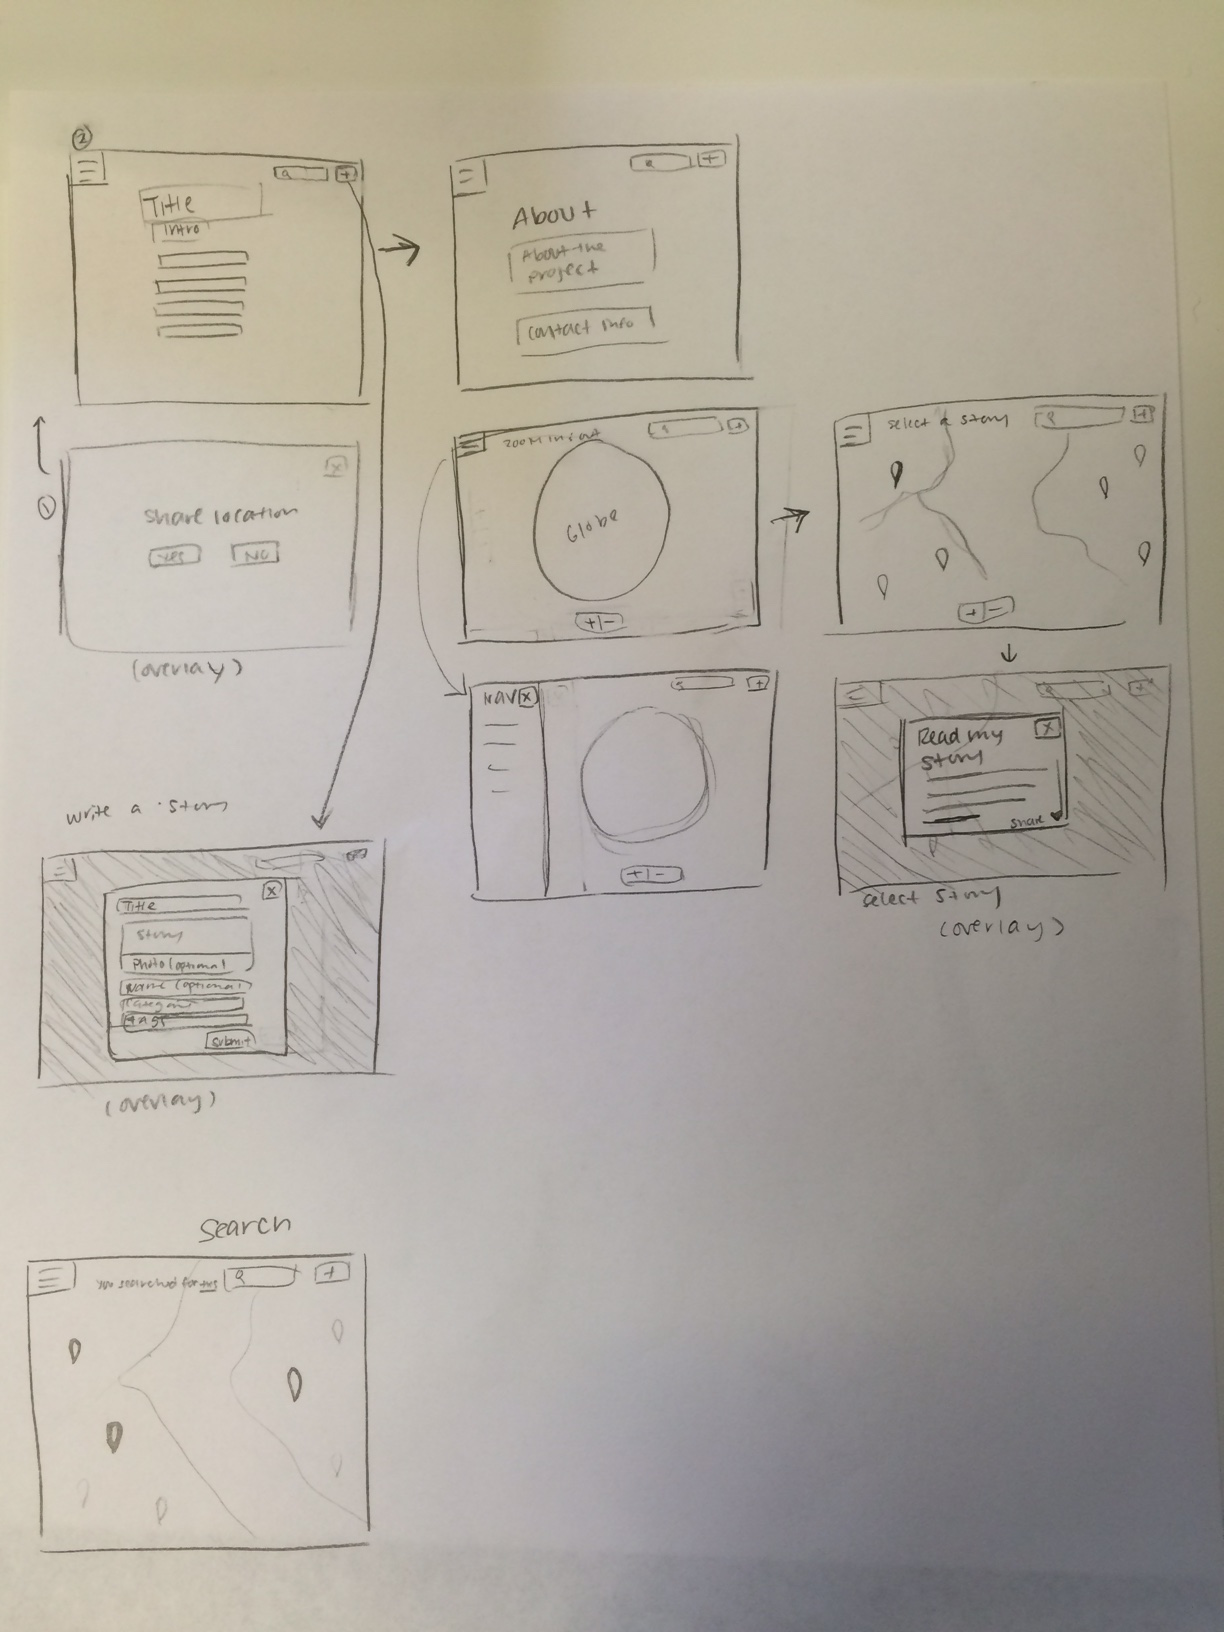 2
Title
Intro
About
About the
project
contact info
1
x
share location
Yes
NO
(overlay)
zoom in/out
Globe
+ | -
select a story
+ | -
NAV x
+ | -
Read my
story
x
share
select story
(overlay)
write a story
x
Title
story
Photo (optional)
Name (optional)
category
tags
submit
(overlay)
search
You searched for this